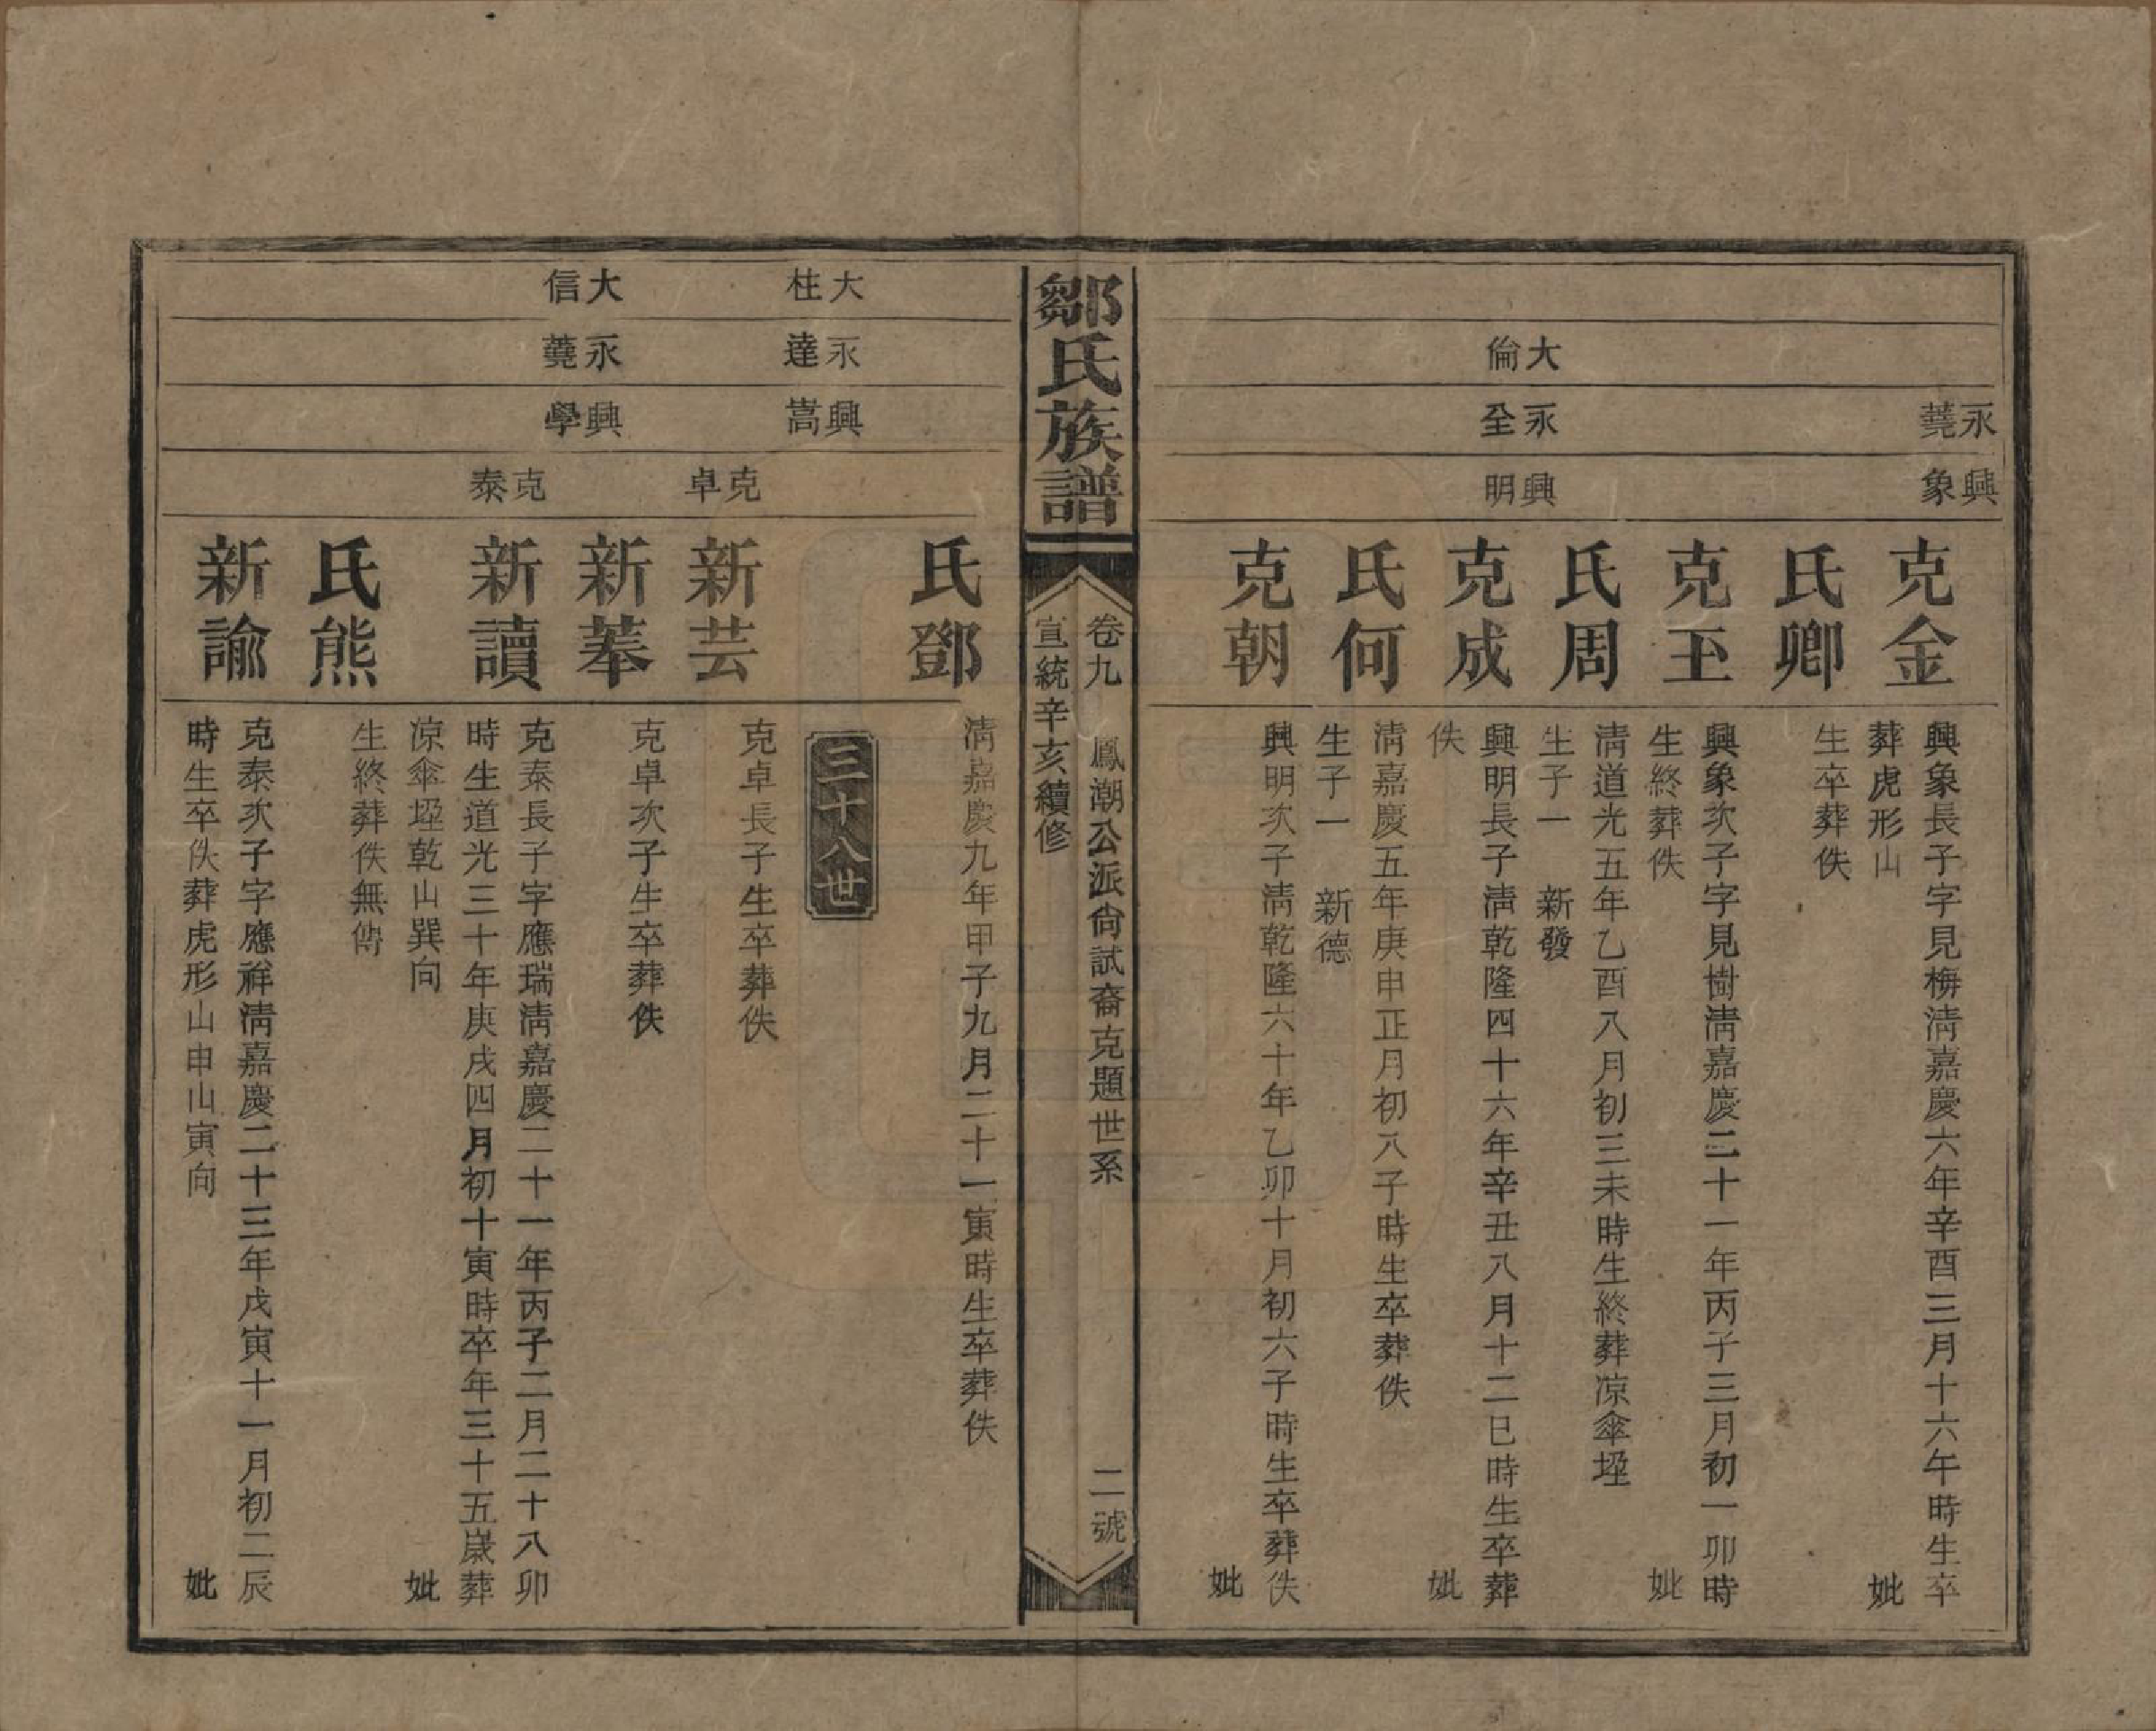 永蕘
興象
克金
興象長子字見梅清嘉慶六年辛酉三月十六午時生卒
葬虎形山
妣
氏卿
生卒葬佚
克玊
興象次子字見樹清嘉慶二十一年丙子三月初一卯時
生終葬佚
妣
氏周
清道光五年乙酉八月初三未時生終葬凉傘垤
生子一 新發
大倫
永全
興明
克成
興明長子清乾隆四十六年辛丑八月十二巳時生卒葬
佚
妣
氏何
清嘉慶五年庚申正月初八子時生卒葬佚
生子一 新德
克朝
興明次子清乾隆六十年乙卯十月初六子時生卒葬佚
妣
鄒氏族譜
卷九 鳳潮公派尙試裔克題世系 二號
宣統辛亥續修
氏鄧
清嘉慶九年甲子九月二十一寅時生卒葬佚
三十八世
大柱
永達
興嵩
克卓
新芸
克卓長子生卒葬佚
新菶
克卓次子生卒葬佚
大信
永蕘
興學
克泰
新讀
克泰長子字應瑞清嘉慶二十一年丙子二月二十八卯
時生道光三十年庚戌四月初十寅時卒年三十五歲葬
凉傘垤乾山巽向
妣
氏熊
生終葬佚無傳
新諭
克泰次子字應祥清嘉慶二十三年戊寅十一月初二辰
時生卒佚葬虎形山申山寅向
妣